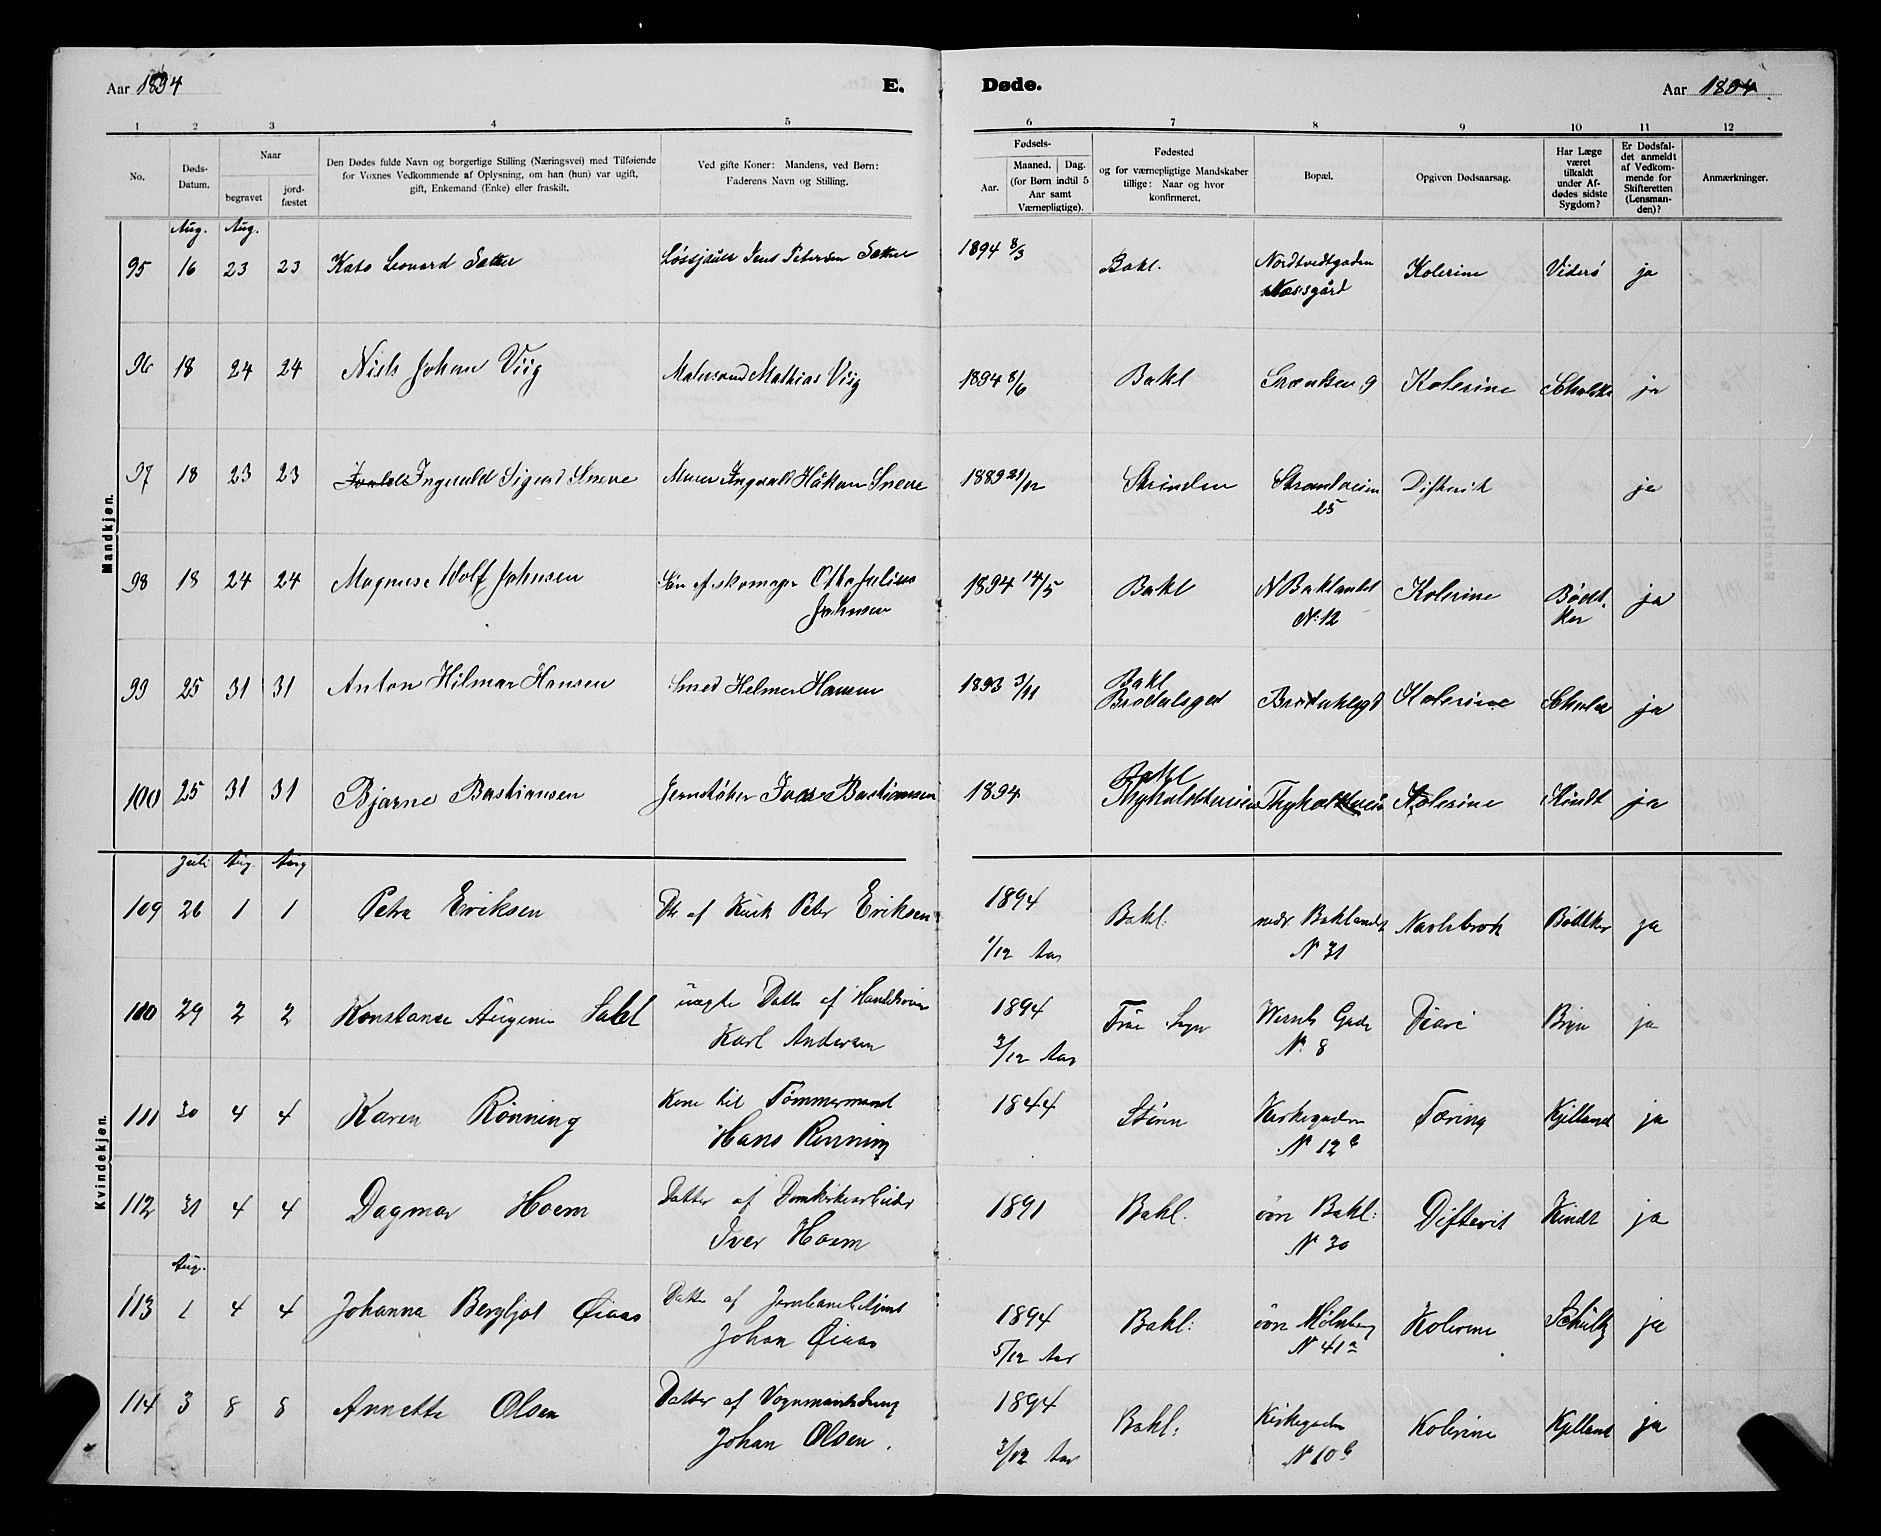 Aar 1894
E.
Døde.
Aar 1894.
1 2 3 4 5 6 7 8 9 10 11 12
No.
Døds-
Datum.
Naar
begravet
jord-
fæstet
Den Dødes fulde Navn og borgerlige Stilling (Næringsvei) med Tilføiende
for Voxnes Vedkommende af Oplysning, om han (hun) var ugift,
gift, Enkemand (Enke) eller fraskilt.
Ved gifte Koner: Mandens, ved Børn:
Faderens Navn og Stilling.
Fødsels-
Aar.
Maaned. Dag.
(for Børn indtil 5
Aar samt
Værnepligtige).
Fødested
og for værnepligtige Mandskaber
tillige: Naar og hvor
konfirmeret.
Bopæl.
Opgiven Dødsaarsag.
Har Læge
været
tilkaldt
under Af-
dødes sidste
Sygdom?
Er Dødsfal-
det anmeldt
af Vedkom-
mende for
Skifteretten
(Lensman-
den)?
Anmærkninger.
Mandkjøn.
Aug. Aug.
95 16 23 23 Jens Petersen 1894 8/3 Bakl. Kolerine ja
96 18 24 24 Niels Johan Viig Mathias Viig 1894 8/6 Bakl Kolerine ja
97 18 23 23 Ingvald Sigurd Sneve Murer Ingvald Håkon Sneve 1889 21/12 Strinden Strandveien Difterit ja
25
98 18 24 24 Magnus Adolf Johnsen Søn af skomager Otto Julius 1894 14/5 Bakl N Baklandet Kolerine Bødt- ja
Johnsen N: 12 ker
99 25 31 31 Anton Hilmar Hansen Smed Helmer Hansen 1893 3/11 Bakl Kolerine ja
100 25 31 31 Bjarne Bastiansen Bastiansen 1894 Bakl Kolerine Kindt ja
Kvindekjøn.
Juli Aug. Aug
109 26 1 1 Petra Eriksen Dtr af Kusk Peter Eriksen 1894 Bakl. nedr. Baklandet Navlebrok Bødtker ja
1/12 Aar N 31
29 2 2 Konstance uægte Datter af 1894 Wernts Gade ja
Karl Andersen 2/12 Aar N. 8
111 30 4 4 Karen Rønning Kone til Tømmermand 1844 Støren Kirkegaden Tæring Kjelland ja
Hans Rønning N 12 b
112 31 4 4 Dagmar Hoem Datter af 1891 Bakl. øvre Bakl: Difterit Kindt ja
Iver Hoem N 30
Aug.
113 1 4 4 Johanna Bergljot Øiaas Datter af 1894 Bakl: øvre Møllenberg Kolerine Schultz ja
Johan Øiaas 5/12 Aar N 41 a
114 3 8 8 Annette Olsen Datter af 1894 Bakl: Kirkegaden Kolerine Kjelland ja
Johan Olsen. 2/12 Aar N 10 b